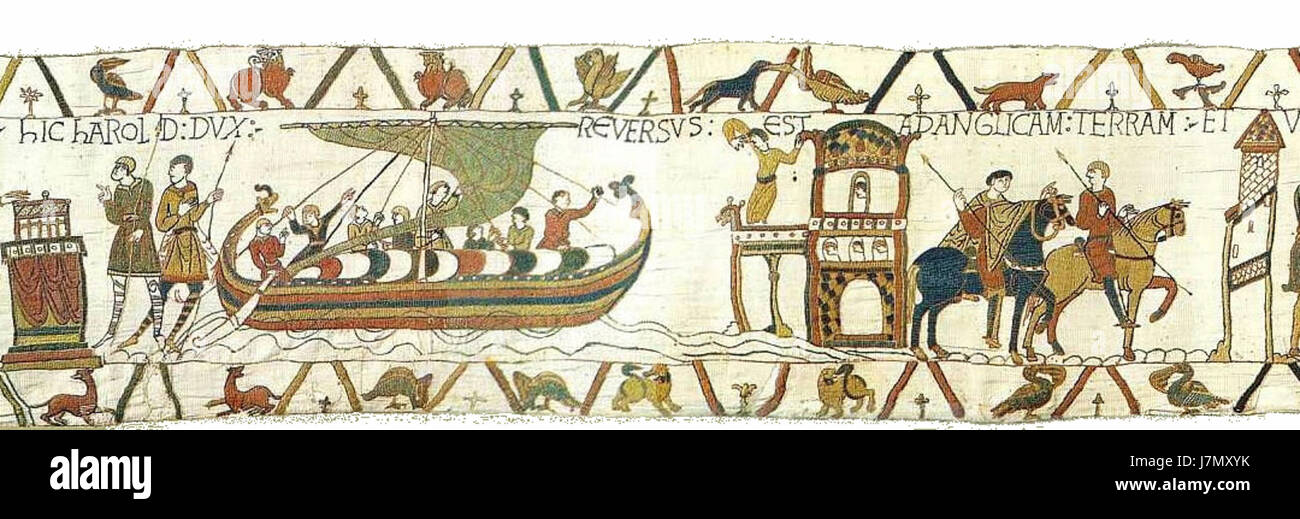 hIC hAROLD: DVX:- REVERSVS: EST ADANGLICAM: TERRAM:- ET V
alamy
alamy
Image ID: J7MXYK
www.alamy.com